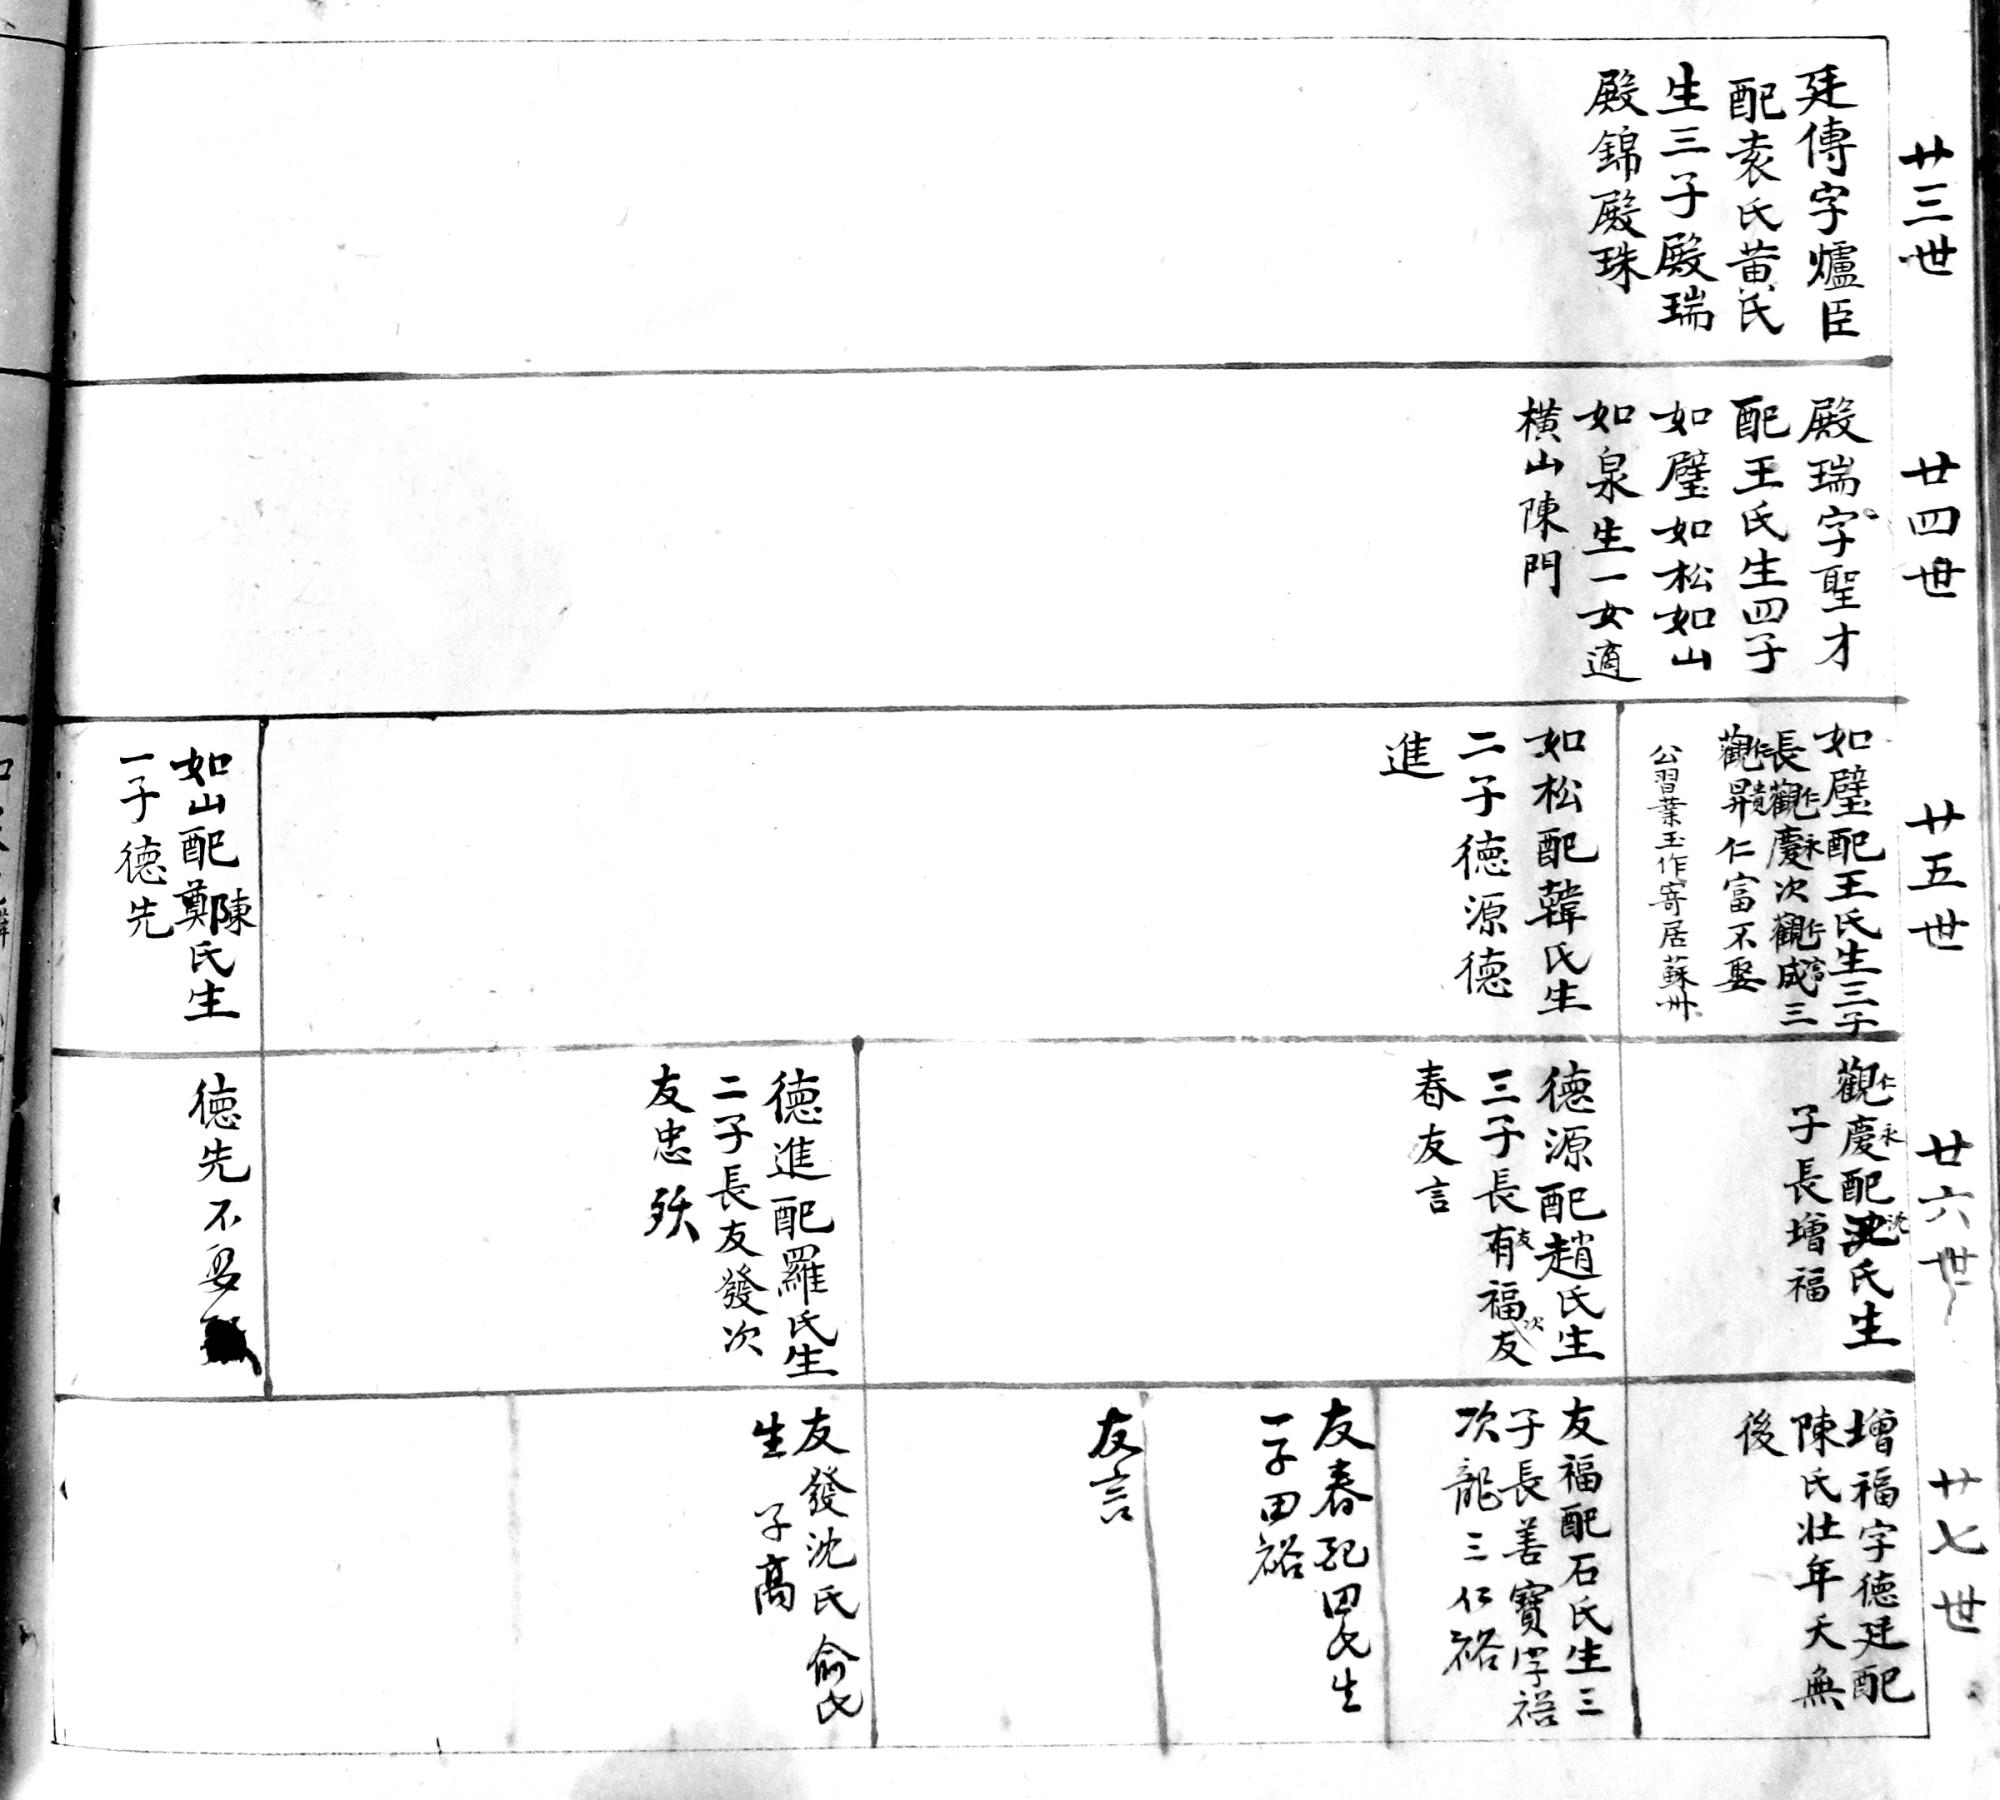 廿三世
廷傳字爐臣
配袁氏黄氏
生三子殿瑞
殿錦殿珠
廿四世
殿瑞字聖才
配王氏生四子
如璧如松如山
如泉生一女適
橫山陳門
廿五世
如璧配王氏生三子
仁永 仁富
長觀慶次觀成三
仁貴
觀昇仁富不娶
公習業玉作寄居蘇州
如松配韓氏生
二子德源德
進
陳
如山配鄭氏生
一子德先
廿六世
仁永 沈
觀慶配沈氏生
子長增福
德源配趙氏生
友 次
三子長有福友
春友言
德進配羅氏生
二子長友發次
友忠殀
德先不娶
廿七世
增福字德廷配
陳氏壯年夭無
後
友福配石氏生三
子長善寶字裕
次龍三仁裕
友春配田氏生
一子田裕
友言
友發沈氏俞氏
生 子高